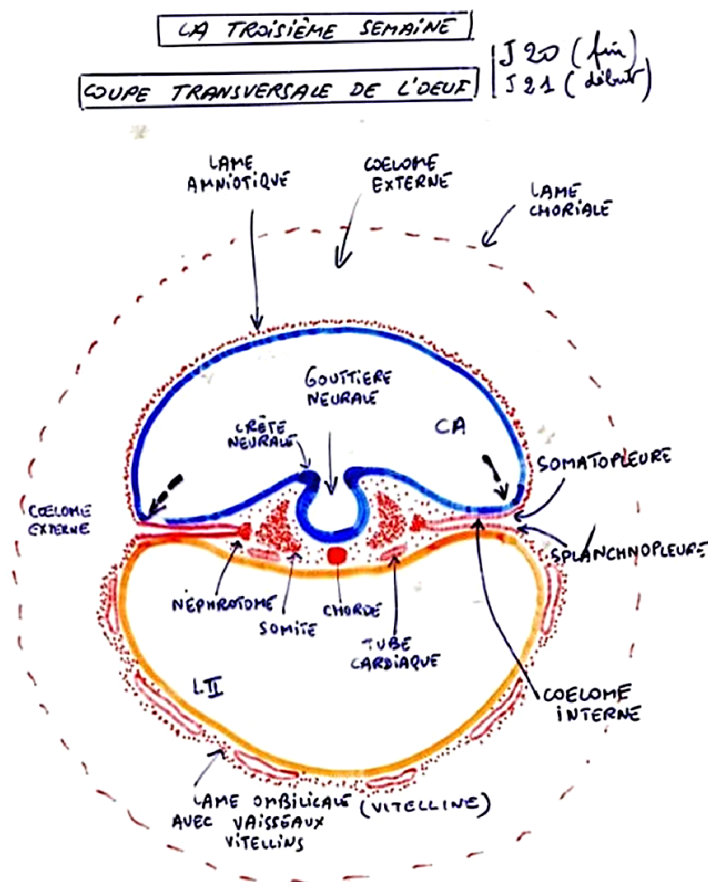 LA TROISIÈME SEMAINE
COUPE TRANSVERSALE DE L'OEUF
J 20 (fin)
J 21 (début)
LAME
AMNIOTIQUE
COELOME
EXTERNE
LAME
CHORIALE
GOUTTIÈRE
NEURALE
CRÊTE
NEURALE
CA
SOMATOPLEURE
COELOME
EXTERNE
SPLANCHNOPLEURE
NÉPHROTOME
SOMITE
CHORDE
TUBE
CARDIAQUE
L II
COELOME
INTERNE
LAME OMBILICALE (VITELLINE)
AVEC VAISSEAUX
VITELLINS